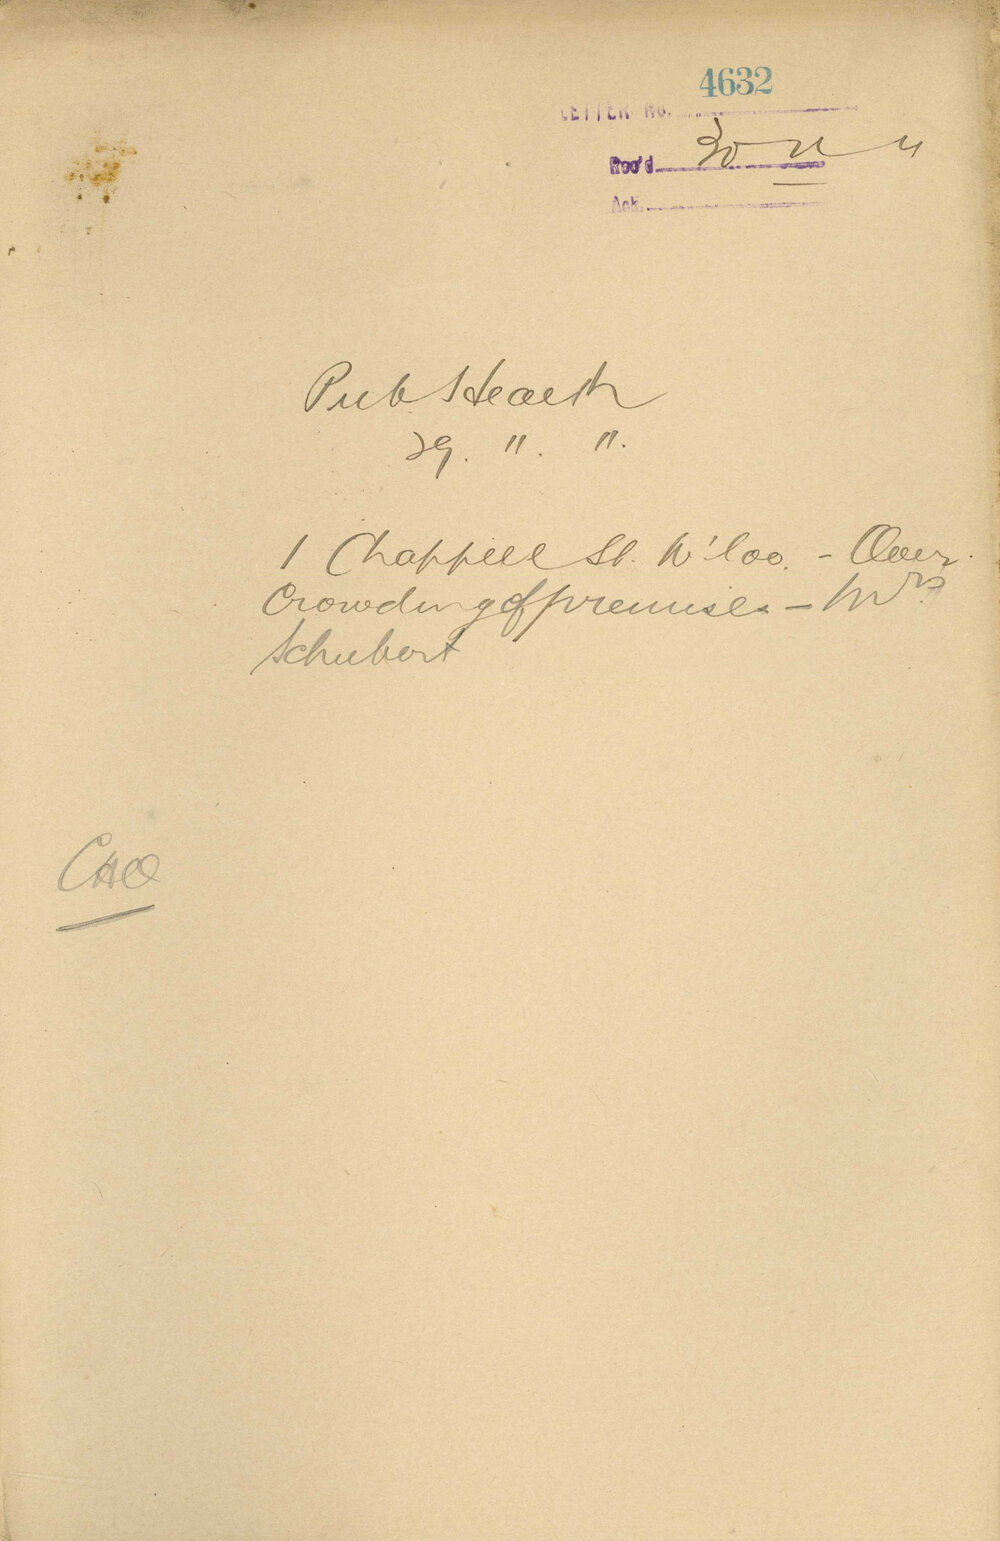 4632
LETTER No.
Rec'd 30 11 11
Ack.
Pub Health
29. 11. 11.
1 Chappell St. W'loo. - Over
Crowding of premises - Mrs
Schubert
CHO